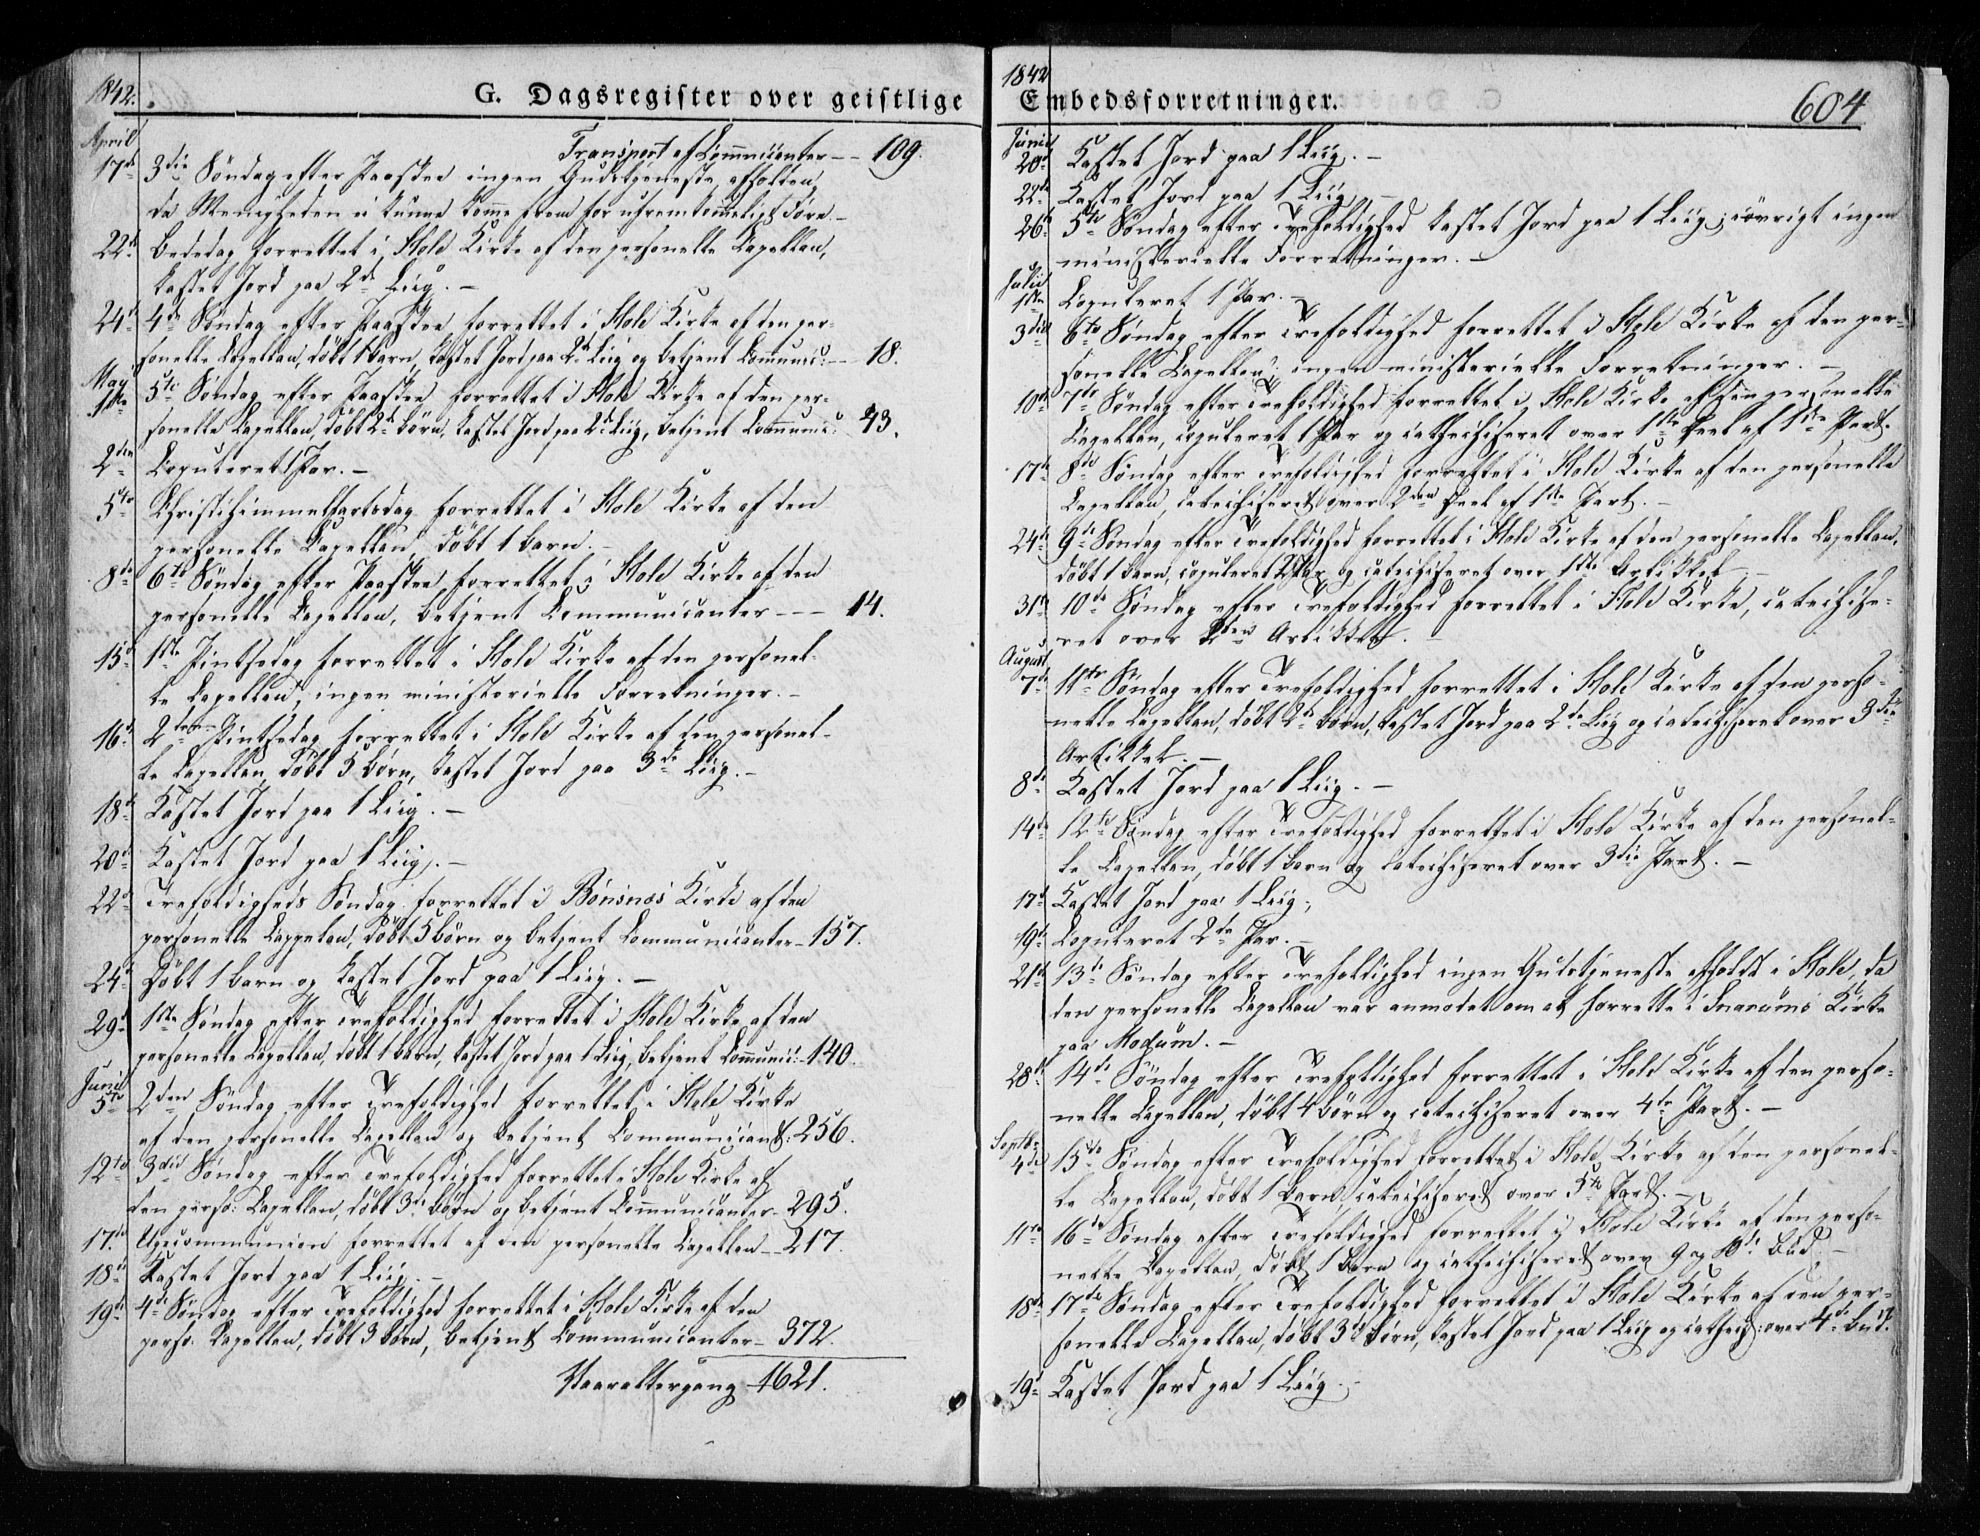 1842.
G. Dagsregister over geistlige
April
Transport af Communicanter -- 109.
17de 3die Søndag efter Paaske ingen Gudstjeneste afholden,
da Menigheden ei kunne komme frem for ufremkommeligt Føre. -
22de Bededag forrettet i Hole Kirke af den personelle Capellan,
kastet Jord paa 2de Liig. -
24de 4de Søndag efter Paaske forrettet i Hole Kirke af den per-
sonelle Capellan, døbt 1 barn, kastet Jord paa 2de Liig og betjent Communic: -- 18.
May
1ste 5te Søndag efter Paaske forrettet i Hole Kirke af den per-
sonelle Capellan, døbt 2de børn, kastet Jord paa 2de Liig, betjent Communic: 43.
2den Copuleret 1 Par. -
5te Christihimmelfartsdag forrettet i Hole Kirke af den
personelle Capellan, døbt 1 barn. -
8de 6te Søndag efter Paaske forrettet i Hole Kirke af den
personelle Capellan, betjent Communicanter --- 14.
15de 1ste Pintsedag forrettet i Hole Kirke af den personel-
le Capellan, ingen ministerielle Forretninger. -
16de 2den Pintsedag forrettet i Hole Kirke af den personel-
le Capellan, døbt 5 børn, kastet Jord paa 3de Liig. -
18de Kastet Jord paa 1 Liig. -
20de Kastet Jord paa 1 Liig. -
22de Trefoldigheds Søndag forrettet i Bönsnæs Kirke af den
personelle Cappelan, døbt 5 børn og betjent Communicanter - 157.
24de Døbt 1 barn og kastet Jord paa 1 Liig. -
29de 1ste Søndag efter Trefoldighed forrettet i Hole Kirke af den
personelle Capellan, døbt 1 barn, kastet Jord paa 1 Liig, betjent Communic: - 140.
Junii
5te 2den Søndag efter Trefoldighed forrettet i Hole Kirke
af den personelle Capellan og betjent Communicant: 256.
12te 3die Søndag efter Trefoldighed forrettet i Hole Kirke af
den perso: Capellan, døbt 3de børn og betjent Communicanter - 295.
17de Ugecommunion forrettet af den personelle Capellan -- 217.
18de Kastet Jord paa 1 Liig. -
19de 4de Søndag efter Trefoldighed forrettet i Hole Kirke af den
perso. Capellan, døbt 3 børn, betjent Communicanter - 372.
Vaaraltergang 1621.
1842
Embedsforretninger.
604
Junii
20de Kastet Jord paa 1 Liig. -
22de Kastet Jord paa 1 Liig. -
26de 5te Søndag efter Trefoldighed kastet Jord paa 1 Liig, iøvrigt ingen
ministerielle Forretninger. -
Julii
1ste Copuleret 1 Par. -
3die 6te Søndag efter Trefoldighed forrettet i Hole Kirke af den per-
sonelle Capellan, ingen ministerielle Forretninger. -
10de 7de Søndag efter Trefoldighed forrettet i Hole Kirke af den personelle
Capellan, copuleret 1 Par og cathechiseret over 1ste Deel af 1ste Part.
17de 8de Søndag efter Trefoldighed forrettet i Hole Kirke af den personelle
Capellan, catechiseret over 2den Deel af 1ste Part. -
24de 9de Søndag efter Trefoldighed forrettet i Hole Kirke af den personelle Capellan,
døbt 1 barn, copuleret 2 Par og catechiseret over 1ste Artikkel -
31te 10de Søndag efter Trefoldighed forrettet i Hole Kirke, catechise-
ret over 2den Artikkel. -
August
7de 11te Søndag efter Trefoldighed forrettet i Hole Kirke af den perso-
nelle Capellan, døbt 2de børn, kastet Jord paa 2de Liig og catechiseret over 3die
Artikkel. -
8de Kastet Jord paa 1 Liig. -
14de 12te Søndag efter Trefoldighed forrettet i Hole Kirke af den personel-
le Capellan, døbt 1 barn og catechiseret over 3die Part. -
17de Kastet Jord paa 1 Liig.
19de Copuleret 2de Par. -
21de 13de Søndag efter Trefoldighed ingen Gudstjeneste afholdt i Hole, da
den personelle Capellan var anmodet om at forrette i Snarums Kirke
paa Modum. -
28de 14de Søndag efter Trefoldighed forrettet i Hole Kirke af den perso-
nelle Capellan, døbt 4 børn og catechiseret over 4de Part. -
Septb:
4de 15de Søndag efter Trefoldighed forrettet i Hole Kirke af den personel-
le Capellan, døbt 1 barn, catechiseret over 5te Part. -
11te 16de Søndag efter Trefoldighed forrettet i Hole Kirke af den perso-
nelle Capellan, døbt 1 barn og cathechiseret over 9 og 10de bud. -
18de 17de Søndag efter Trefoldighed forrettet i Hole Kirke af den per-
sonelle Capellan, døbt 3de børn, kastet Jord paa 1 Liig og cathech: over 4de bud.
19de Kastet Jord paa 1 Liig. -